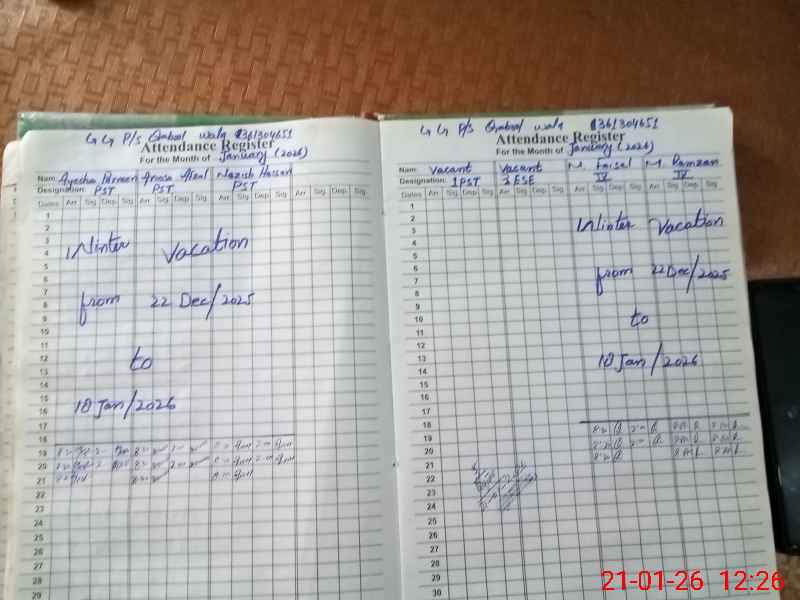 G G P/S Qabool wala 361304651
Attendance Register
For the Month of January (2026)
Name: Ayesha Parveen Amna Afzal Nazish Hassan
Designation: PST PST PST
Dates Arr Sig Dep Sig Arr Sig Dep Sig Arr Sig Dep Sig Arr Sig Dep Sig
1
2
3
4
5
6
7
8
9
10
11
12
13
14
15
16
17
18
19
20
21
22
23
24
25
26
27
28
29
Winter Vacation
from 22 Dec/2025
to
18 Jan/2026
G G P/S Qabool wala 361304651
Attendance Register
For the Month of January (2026)
Name: Vacant Vacant M. Faisal M. Ramzan
Designation: 1PST ESE IV IV
Dates Arr Sig Dep Sig Arr Sig Dep Sig Arr Sig Dep Sig Arr Sig Dep Sig
1
2
3
4
5
6
7
8
9
10
11
12
13
14
15
16
17
18
19
20
21
22
23
24
25
26
27
28
29
30
Winter Vacation
from 22 Dec/2025
to
18 Jan/2026
21-01-26 12:26